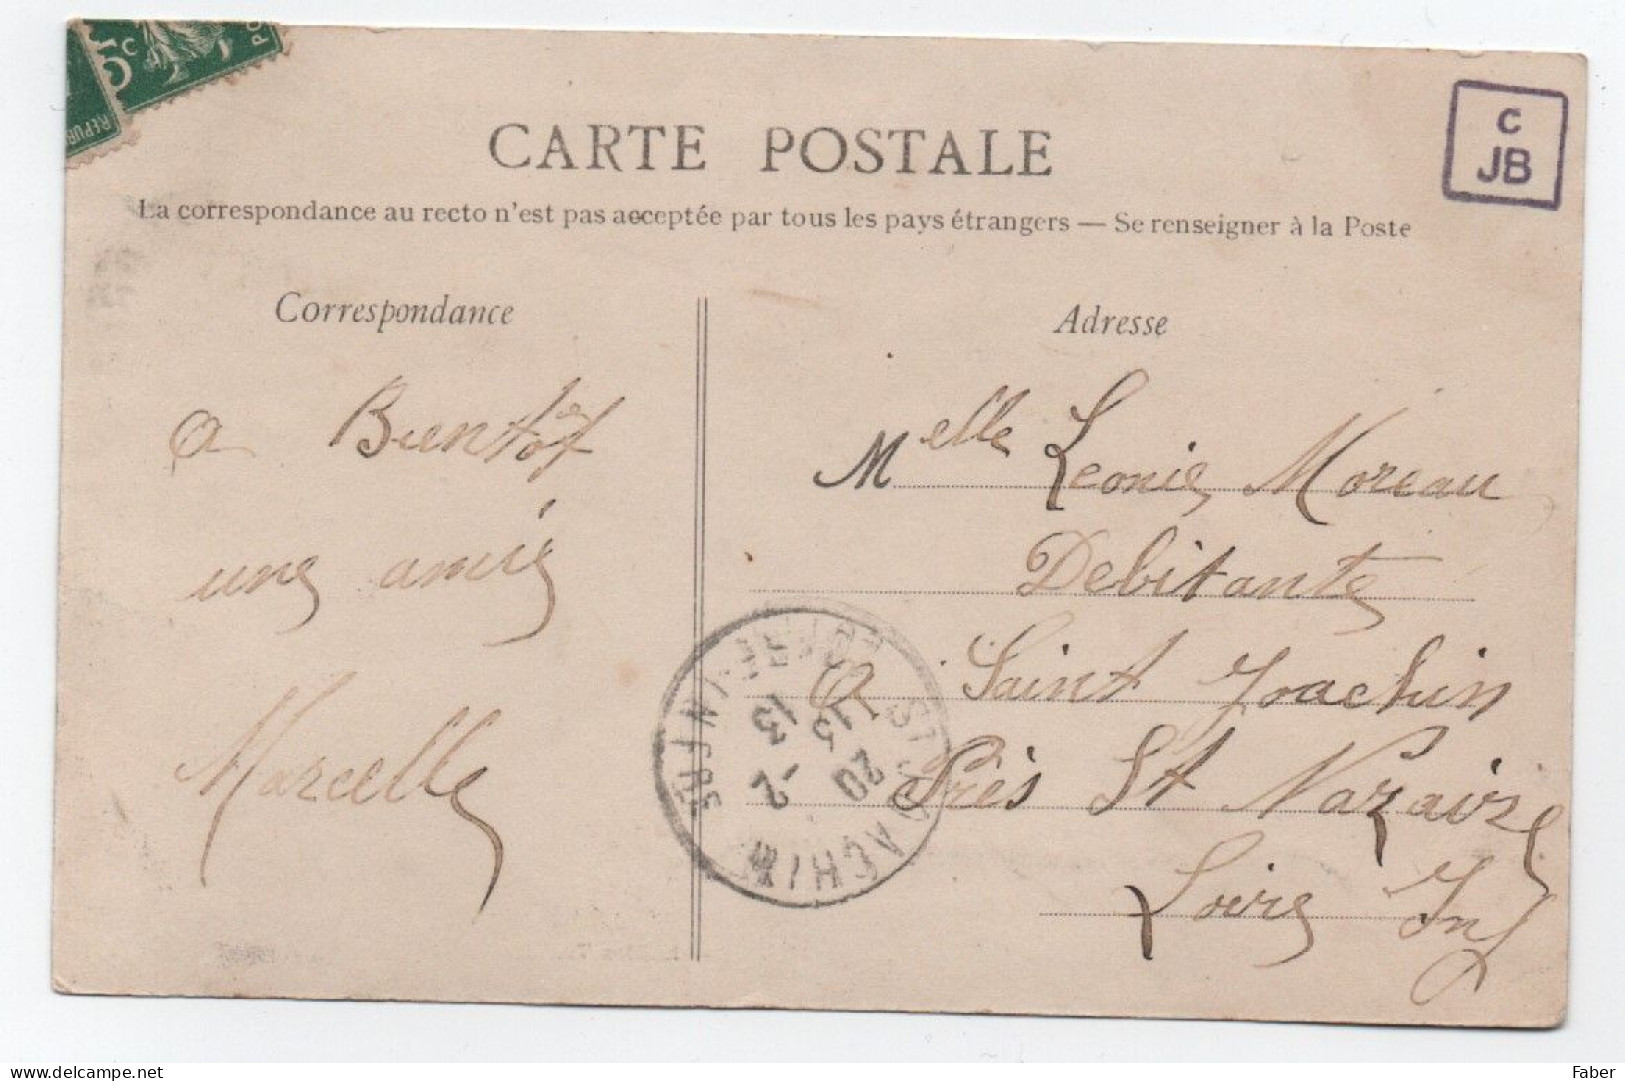 5c
PO
REPUB
C
JB
CARTE POSTALE
La correspondance au recto n'est pas acceptée par tous les pays étrangers — Se renseigner à la Poste
Correspondance
a Bientôt
une amie
Marcelle
Adresse
Melle Leonie Moreau
Debitante
a Saint Joachin
Près St Nazaire
Loire Inf
ST JOACHIM
LOIRE-INFRE
20
2-3
13
Faber